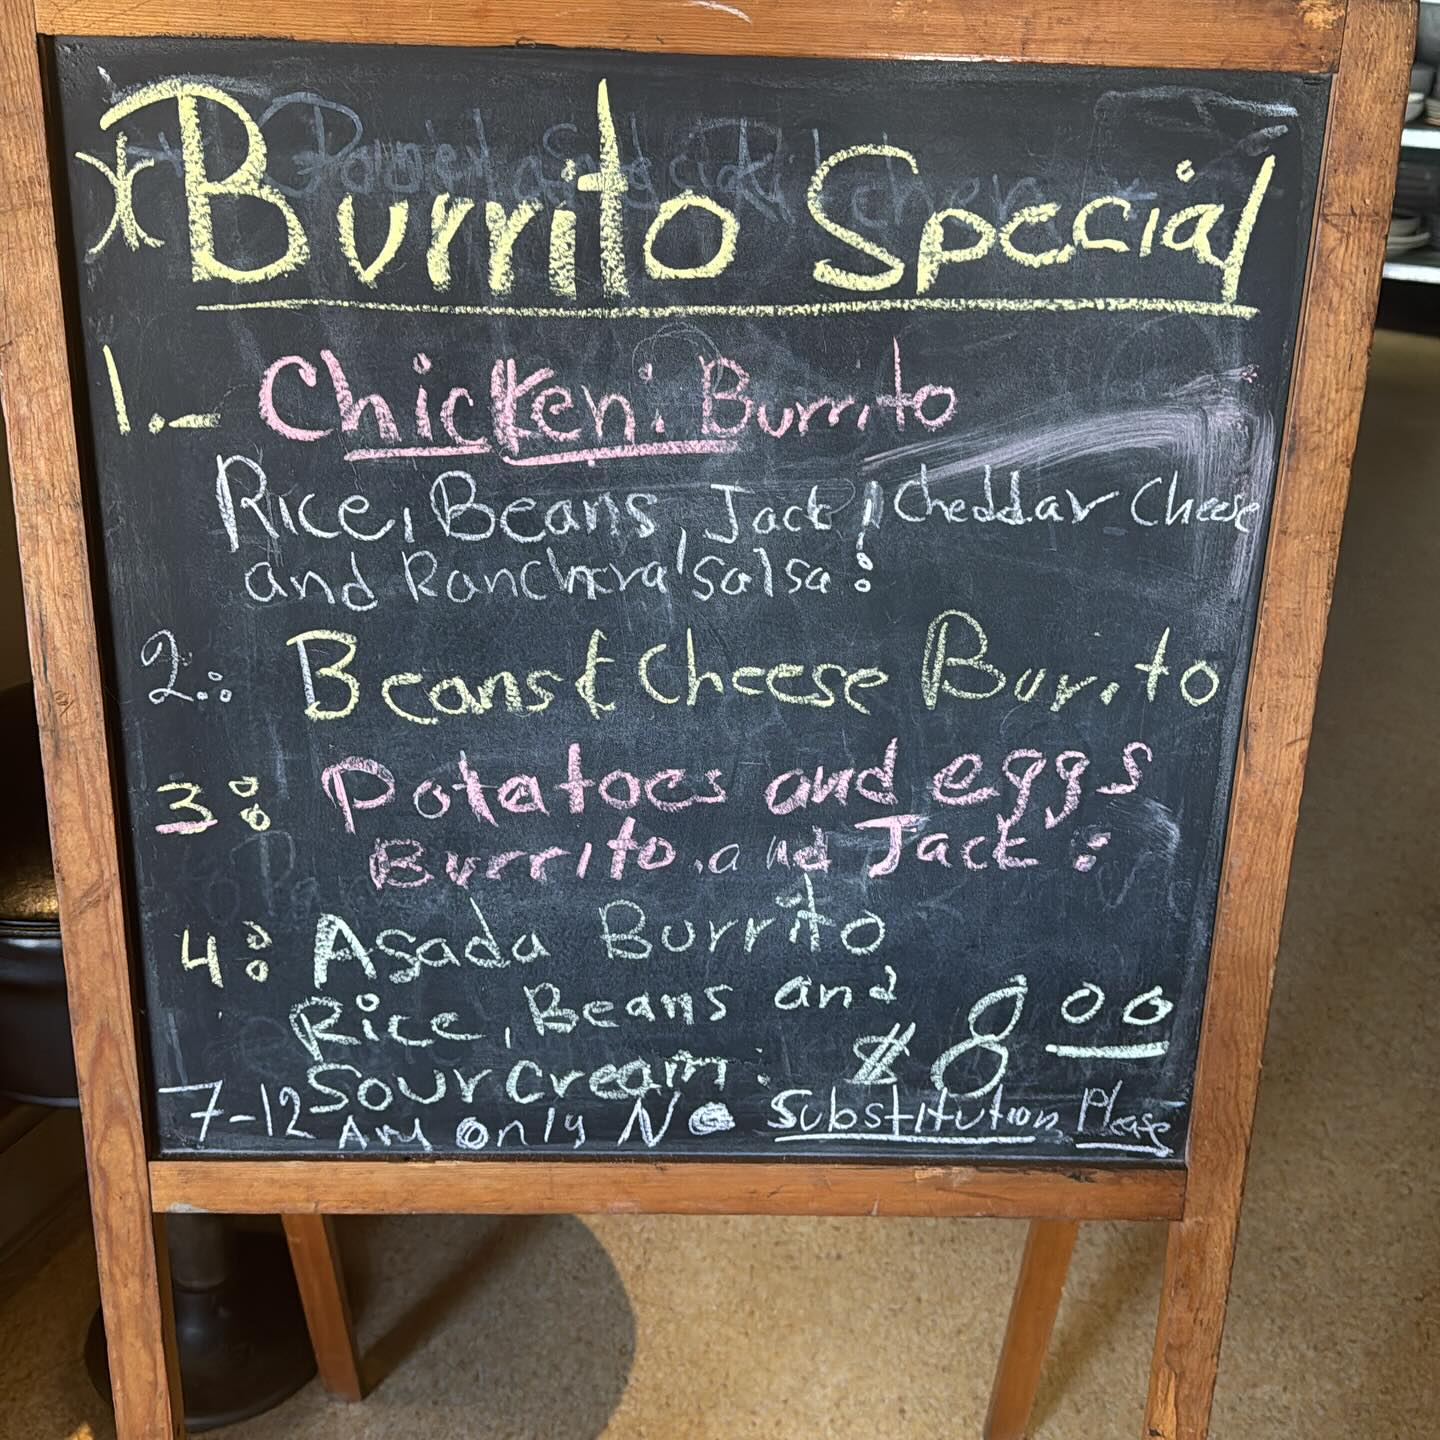 Burrito Special
1.- Chicken: Burrito
Rice, Beans Jack, Cheddar Cheese
and Ranchera Salsa:
2: Beans & Cheese Burrito
3: Potatoes and eggs
Burrito, and Jack:
4: Asada Burrito
Rice, Beans and
Sour cream: $8 00
7-12 AM Only No Substitution Please